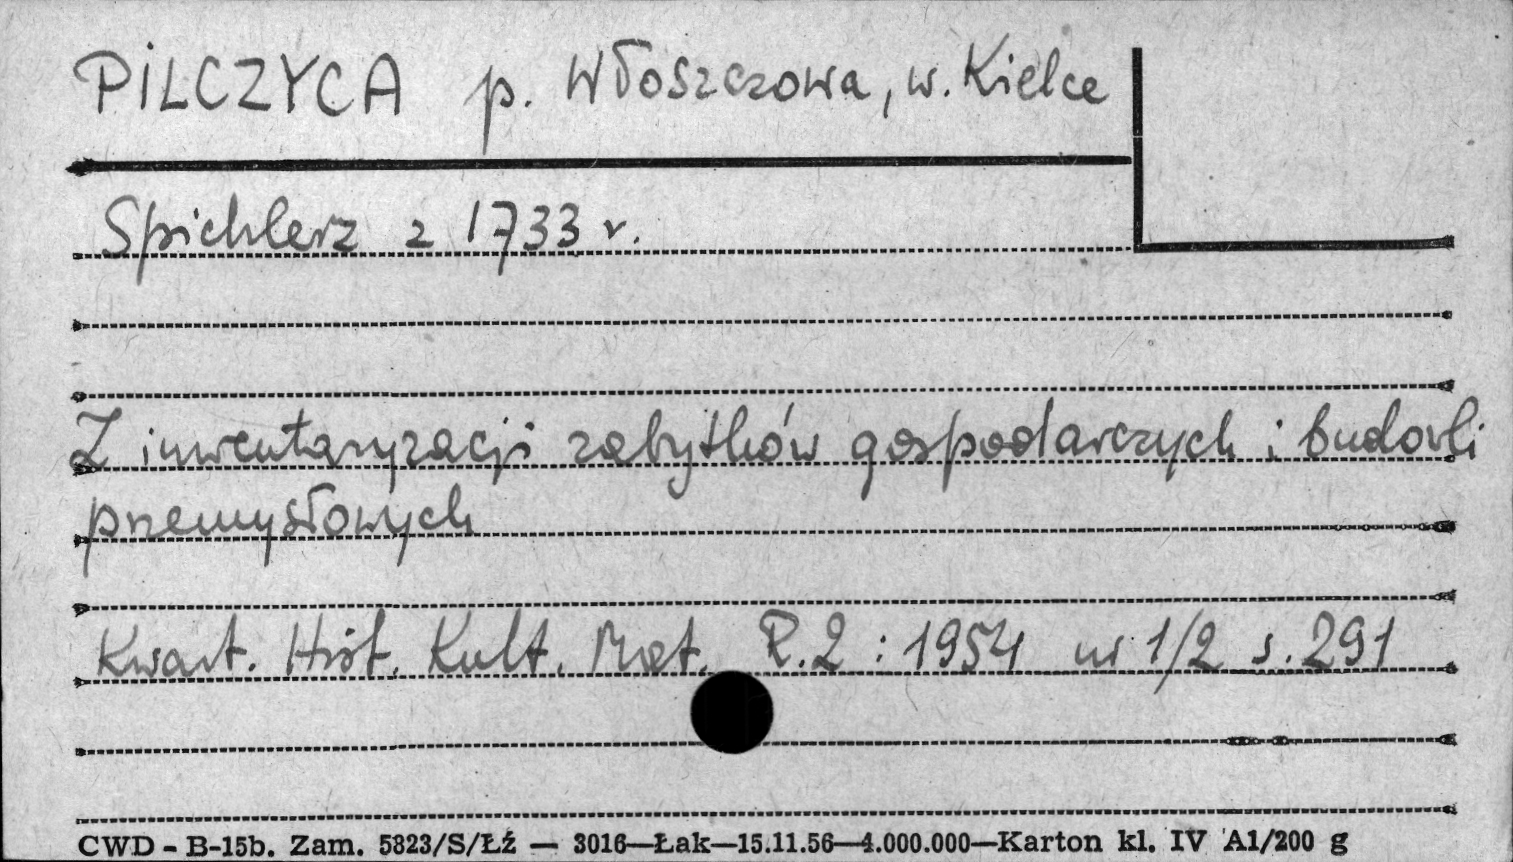 PILCZYCA p. Włoszczowa, w. Kielce
Spichlerz z 1733 r.
Z inwentaryzacji zabytków gospodarczych i budowli
przemysłowych
Kwart. Hist. Kult. Mat. R.2 : 1954 nr 1/2 s. 291
CWD - B-15b. Zam. 5823/S/Łź — 3016—Łak—15.11.56—4.000.000—Karton kl. IV A1/200 g